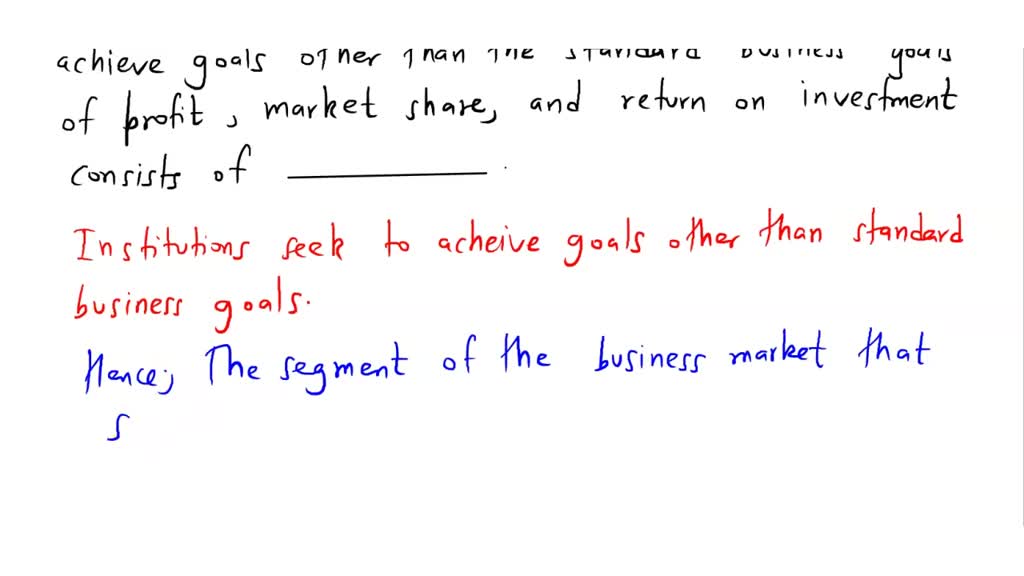 achieve goals other than the standard business goals
of profit, market share, and return on investment
consists of ________ .
Institutions seek to acheive goals other than standard
business goals.
Hence, The segment of the business market that
s